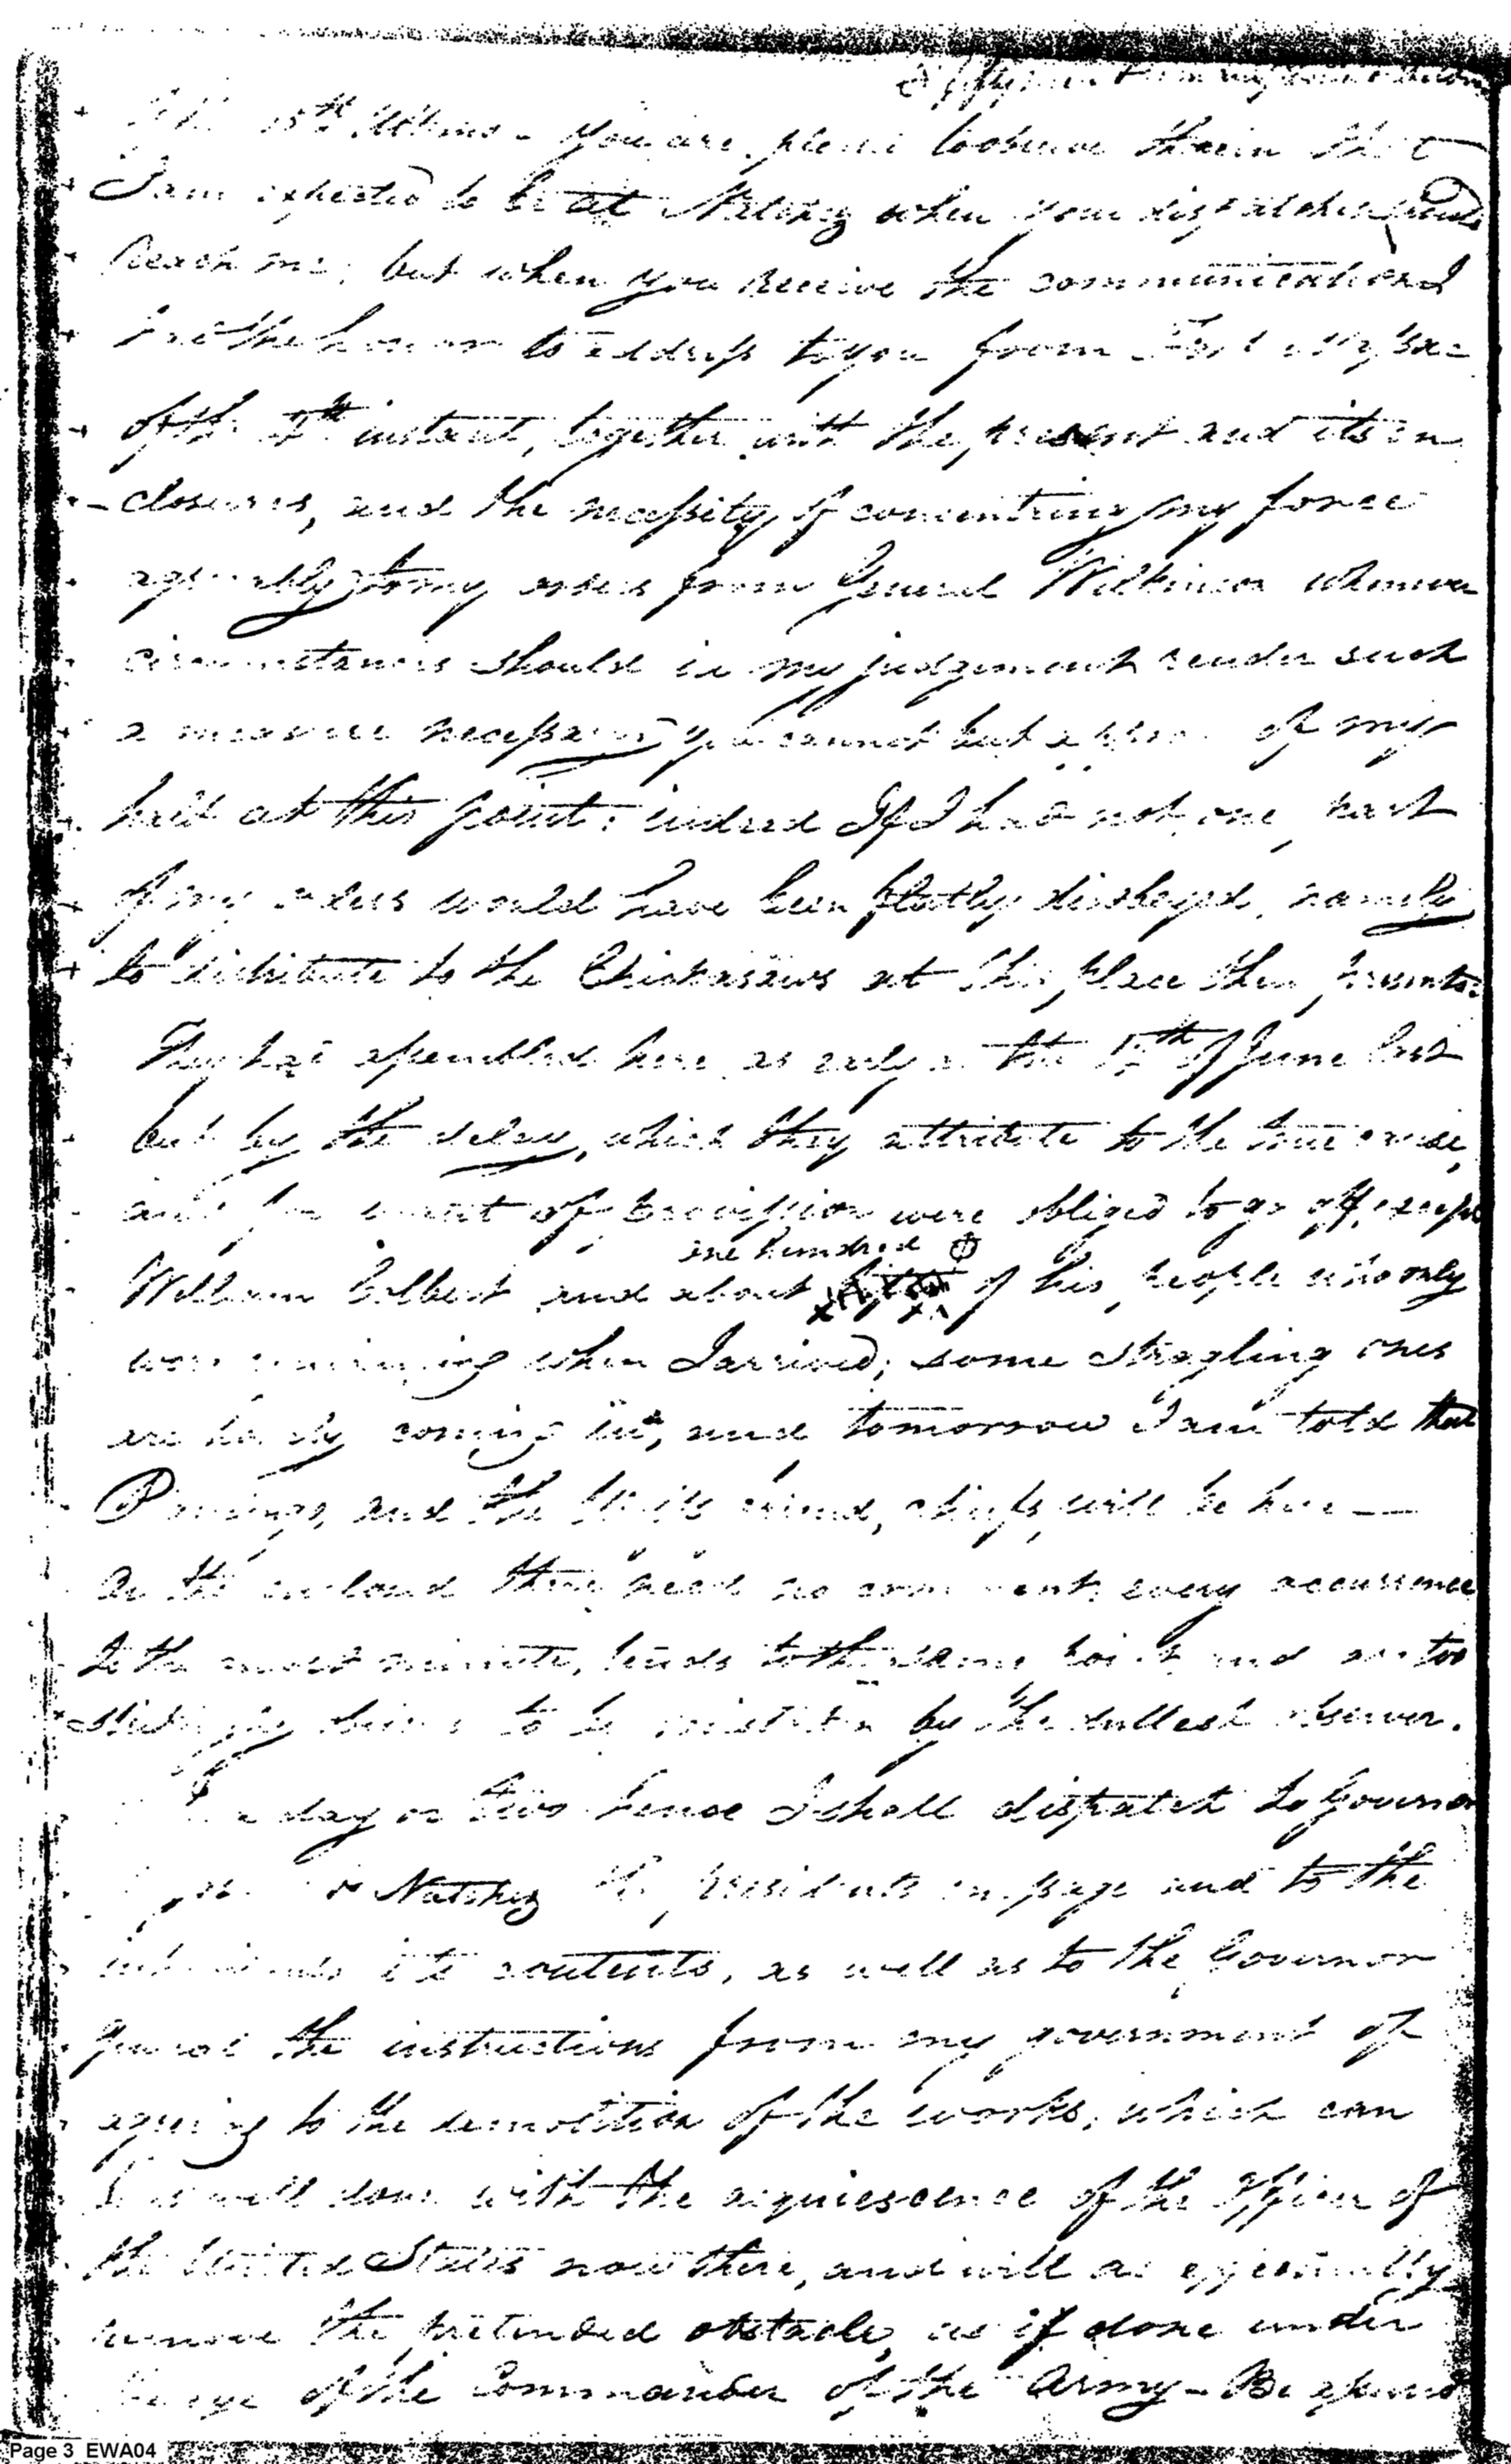 15th Ultimo - You are pleased to observe therein that
I am expected to be at Natchez when your dispatches
Reach me; but when you receive the communication I
had the honor to address to you from
of the instant, together with the present and its en
- closures, and the necessity of concentring my force
agreeably to my orders from General Wilkinson whenever
circumstances should in my judgement render such
a measure necessary you cannot but approve of my
halt at this point: indeed If I had not, one part
of my orders would have been flatly disobeyed, namely
to distribute to the Chickasaws at this place their presents:
They had assembled here as early as the of June last
but by the delay, which they attribute to the true cause,
and for want of provission were obliged to go off, except
one hundred
William Colbert and about of his people who only
were remaining when I arrived; some stragling ones
are hourly coming in, and tomorrow I am told that
and the chiefs, will be here —
On the enclosed there need no comment, every occurrence
to the most minute, tends to the same point and are too
obvious to be mistaken by the dullest observer.
a day or two hence I shall dispatch to Governor
Natchez the presidents message and to the
inhabitants its contents, as well as to the Governor
General the instructions from my government of
agreeing to the demolition of the works, which can
be as well done with the acquiescence of the Officer of
the United States now there, and will as effectually
remove the pretended obstacle, as if done under
the eye of the Commander of the Army - Be assured
Page 3 EWA04